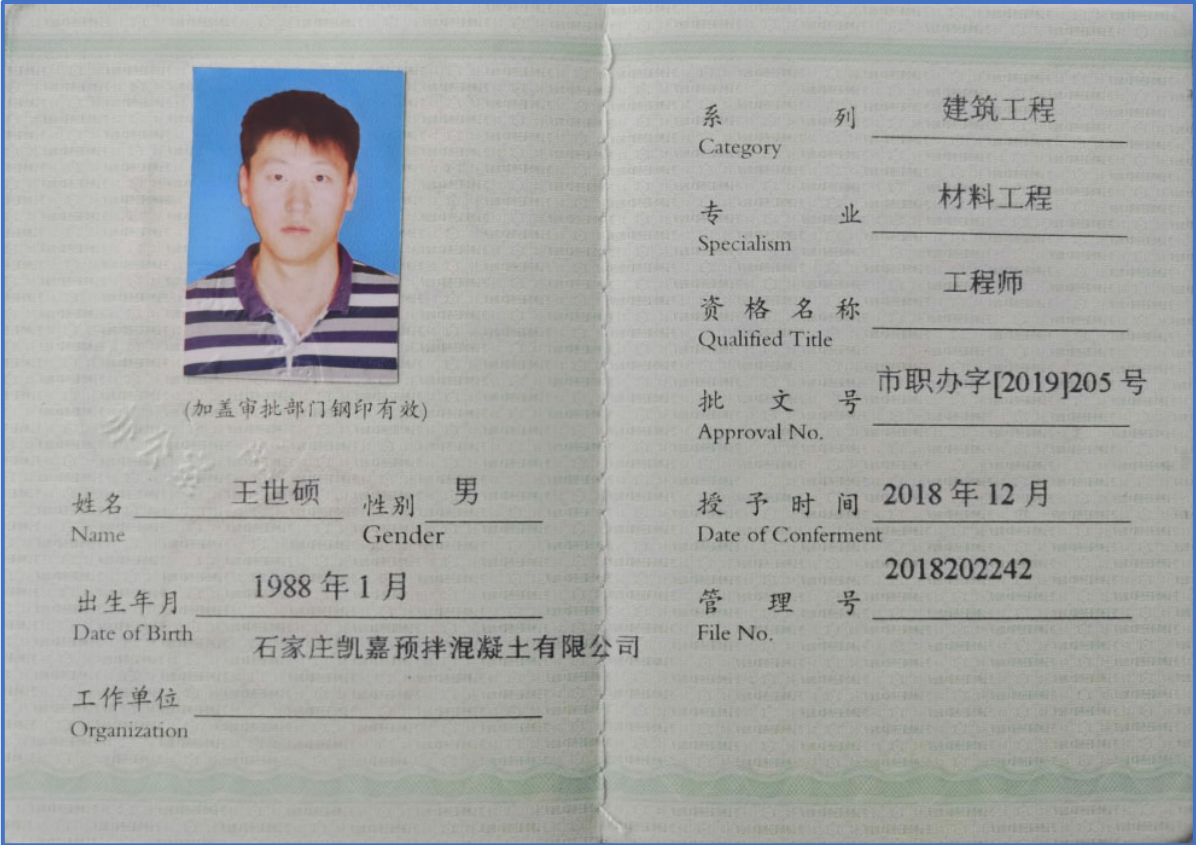 (加盖审批部门钢印有效)
办公室
姓名 王世硕 性别 男
Name Gender
出生年月 1988 年 1 月
Date of Birth
石家庄凯嘉预拌混凝土有限公司
工作单位
Organization
系 列 建筑工程
Category
专 业 材料工程
Specialism
工程师
资 格 名 称
Qualified Title
市职办字[2019]205 号
批 文 号
Approval No.
授 予 时 间 2018 年 12 月
Date of Conferment
2018202242
管 理 号
File No.